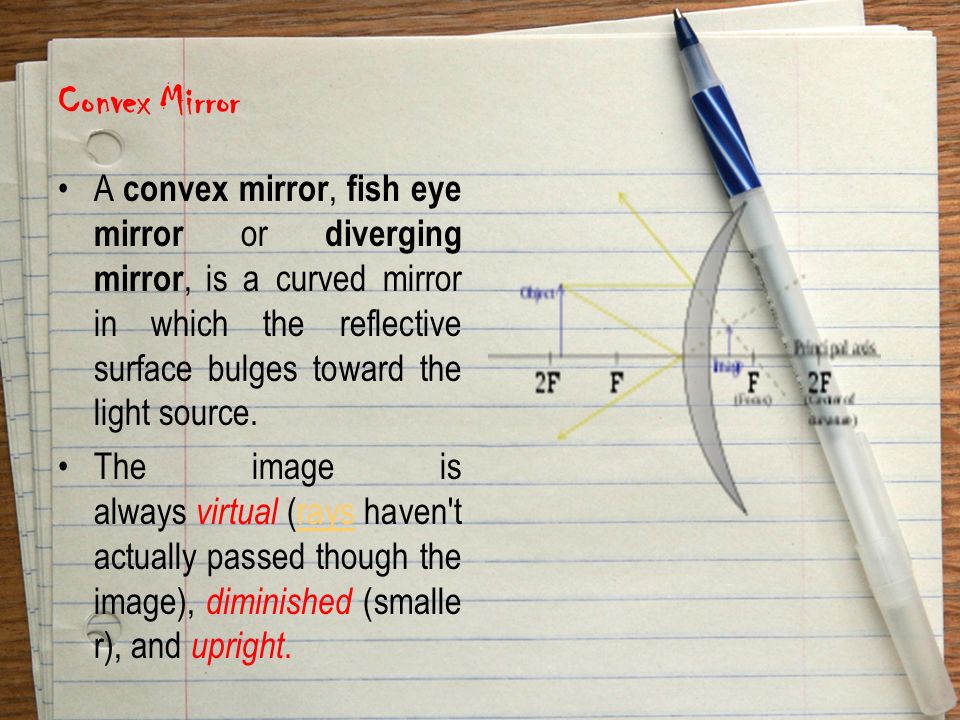 Convex Mirror
• A convex mirror, fish eye
mirror or diverging
mirror, is a curved mirror
in which the reflective
surface bulges toward the
light source.
• The image is
always virtual (rays haven't
actually passed though the
image), diminished (smalle
r), and upright.
Object
Principal axis
Image
2F F F 2F
(Focus) (Center of
curvature)